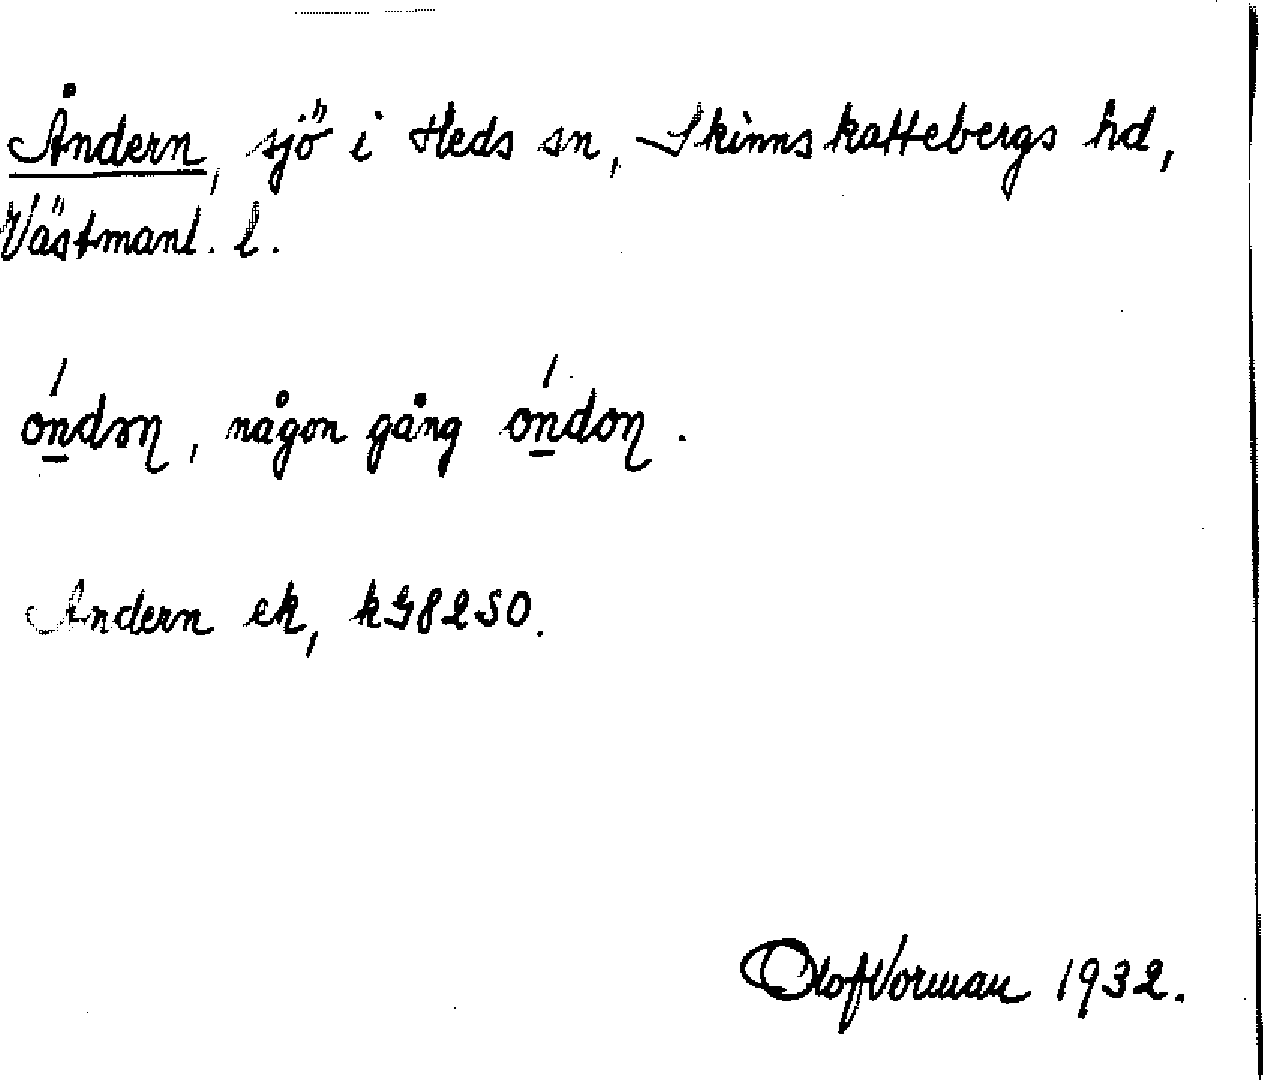 Åndern, sjö i Heds sn, Skinnskattebergs hd,
Västmanl. l.
óndəɳ, någon gång óndoɳ.
Andern ek, kG8250.
Olof Vorman 1932.